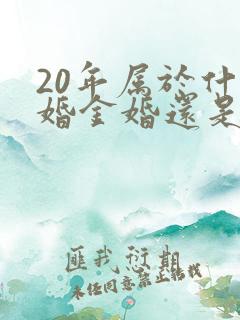 20年属於什
婚金婚還是
匪我愆期
未经同意禁止转载